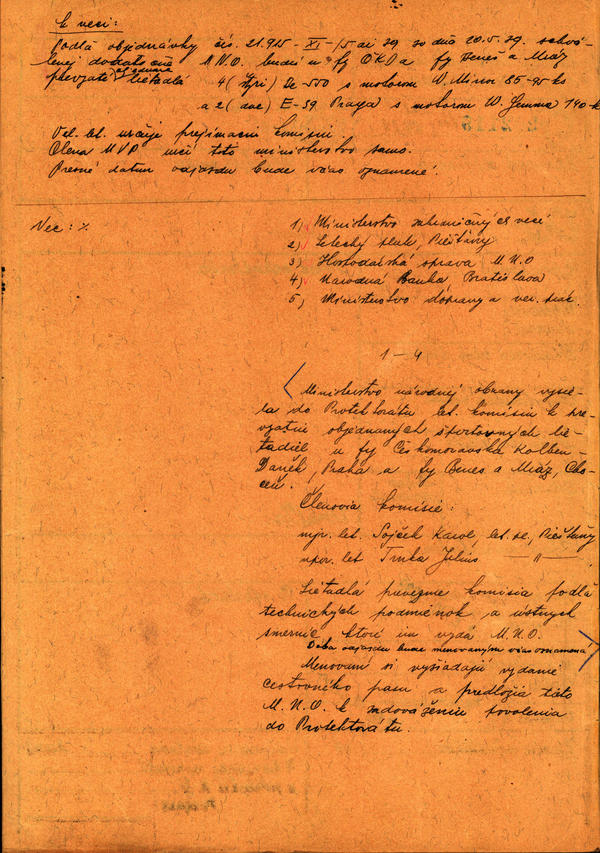 K veci:
Podľa objednávky čís. 21.915-XI-/5 ai 39 zo dňa 20.5.39. schvá-
lenej dodatočně M.N.O. budú u fy ČKD a fy Beneš a Mráz
prevzaté objednané lietadlá 4 (štyri) Be-550 s motorom W. Minor 85-95 ks
a 2 (dve) E-39 Praga s motorom W. Gemma 140 k
Vel. let. určuje prejímacú komisiu.
Člena MVP určí toto ministerstvo samo.
Presné datum odjazdu bude včas oznamené.
Vec: %
1) Ministerstvo zahraničných vecí
2) Letecký pluk, Piešťany
3) Hospodárská správa M.N.O
4) Národná Banka, Bratislava
5) Ministerstvo dopravy a ver. prác.
1-4
Ministerstvo národnej obrany vysie-
la do Protektorátu let. komisiu k pre-
vzatiu objednaných športovných lie-
tadiel u fy Českomoravská Kolben-
Daněk, Praha a fy Beneš a Mráz, Cho-
ceň.
Členovia komisie:
mjr. let. Sojček Karol, let. pl., Piešťany
npor. let Trnka Július —— " ——
Lietadlá prevezme komisia podľa
technických podmienok a ústnych
smerníc, ktoré im vydá M.N.O.
Doba odjazdu bude menovaným včas oznamená
Menovaní si vyžiadajú vydanie
cestovného pasu a predložia tieto
M.N.O. k zadováženiu povolenia
do Protektorátu.